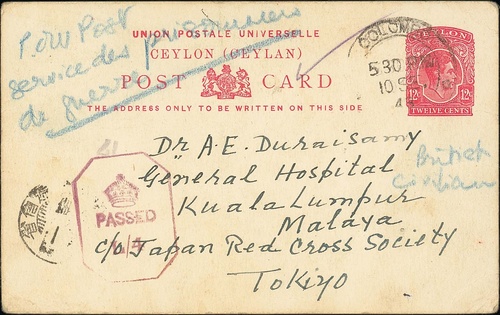 P.O.W Post
service des prisonniers
de guerre
UNION POSTALE UNIVERSELLE
CEYLON (CEYLAN)
POST CARD
THE ADDRESS ONLY TO BE WRITTEN ON THIS SIDE
COLOMBO
5 30 PM
10 S
4
12c. 12c.
TWELVE CENTS
Dr A. E. Duraisamy
General Hospital
Kuala Lumpur
Malaya
c/o Japan Red Cross Society
Tokiyo
British
Civilian
61
PASSED